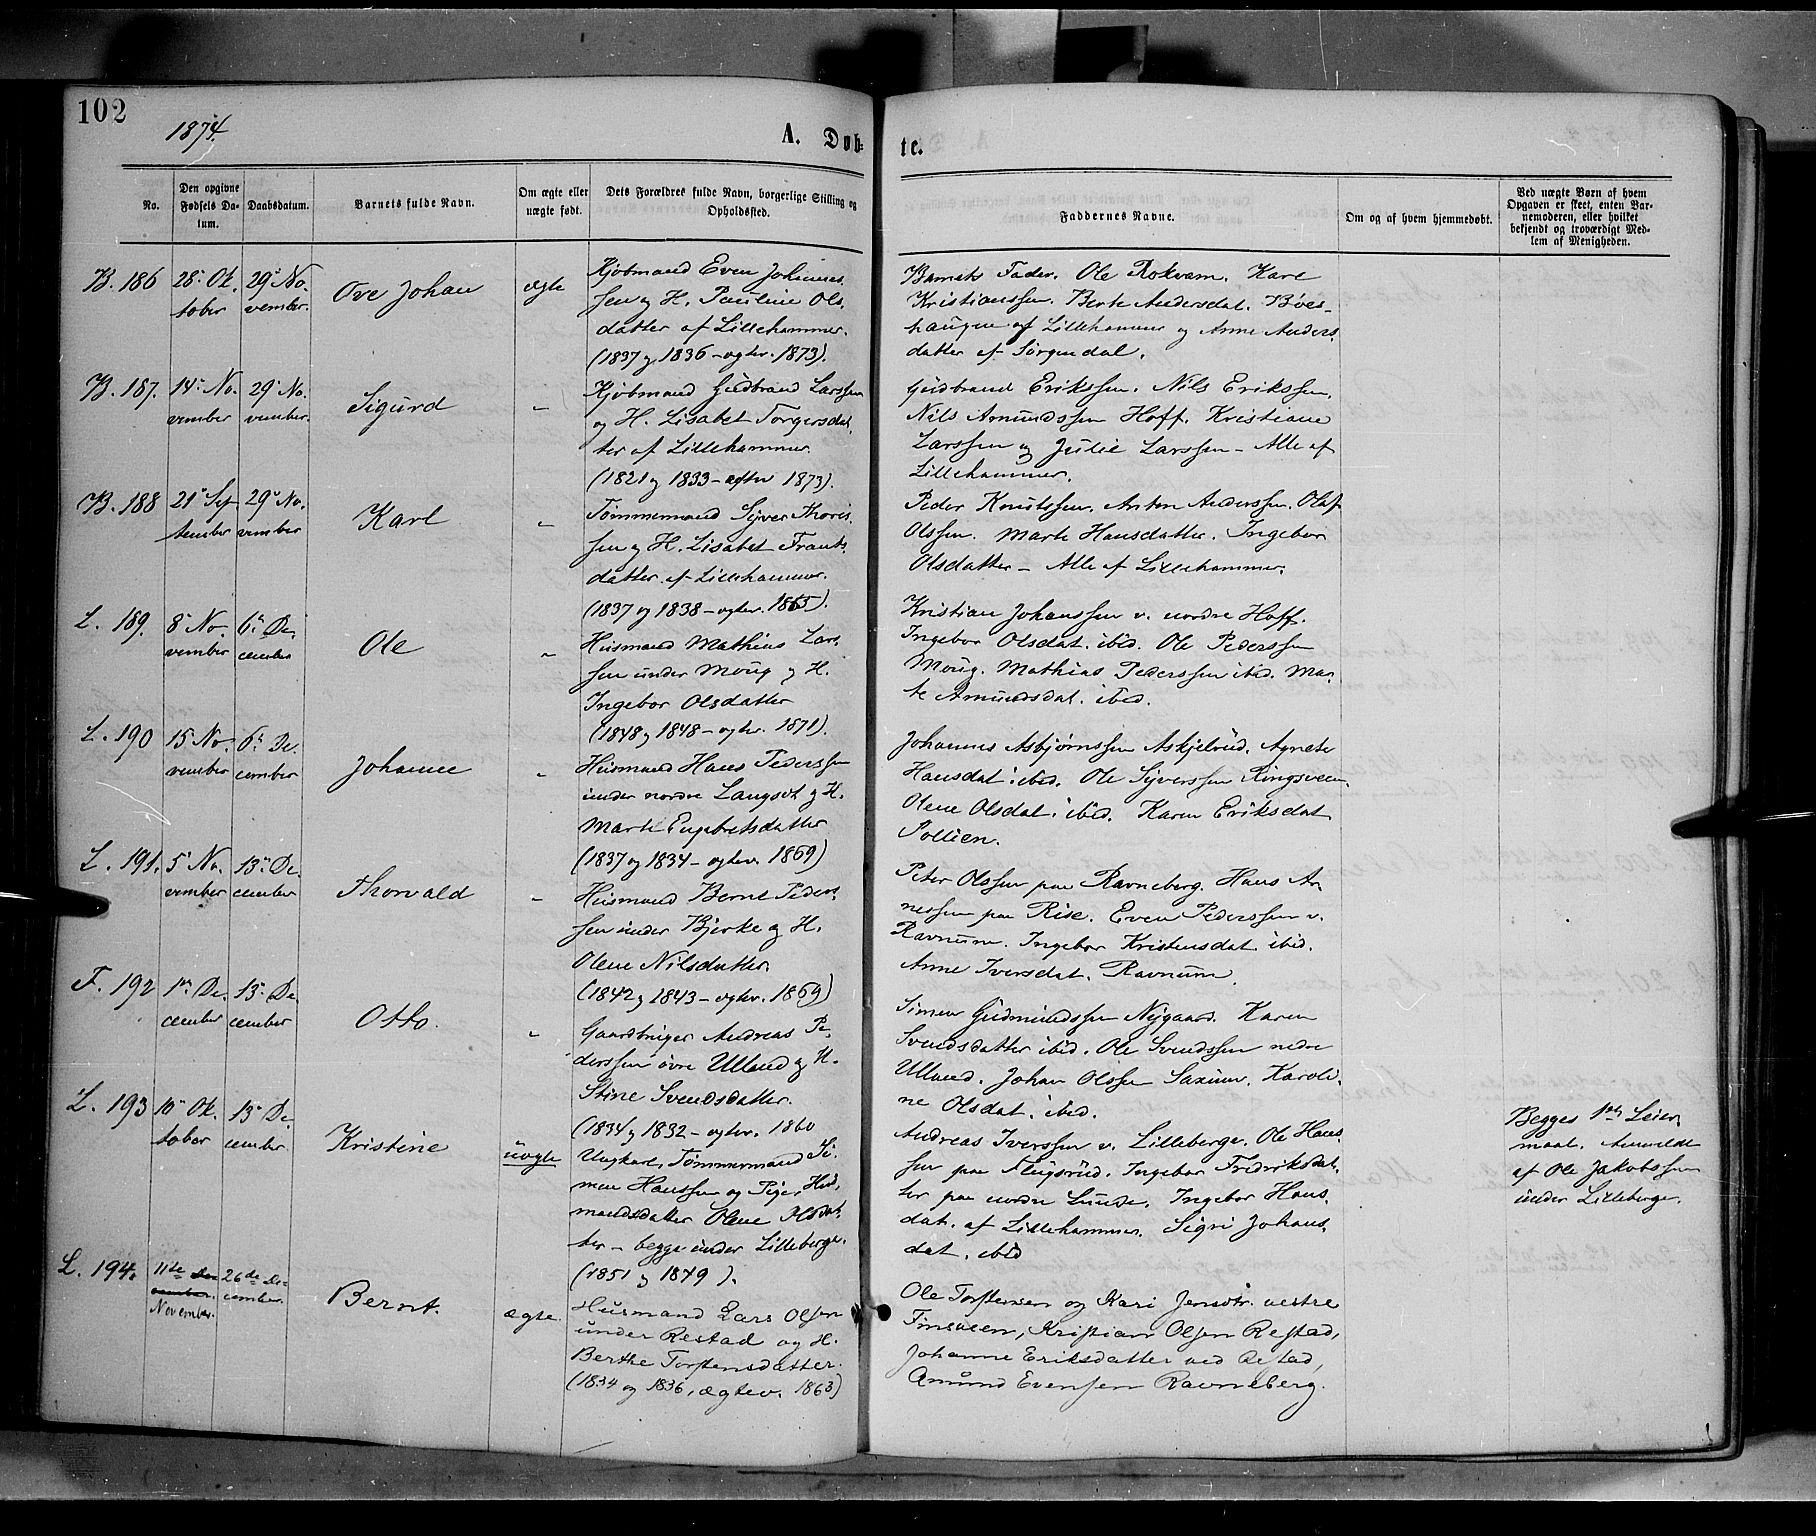 102
1874.
A. Døb-
te.
No.
Den opgivne
Fødsels Da-
tum.
Daabsdatum.
Barnets fulde Navn.
Om ægte eller
uægte født.
Dets Forældres fulde Navn, borgerlige Stilling og
Opholdssted.
Faddernes Navne.
Om og af hvem hjemmedøbt.
Ved uægte Børn af hvem
Opgaven er skeet, enten Bar-
nemoderen, eller hvilket
bekjendt og troværdigt Med-
lem af Menigheden.
B. 186
28. Ok-
tober
29. No-
vember.
Ove Johan
ægte
Kjøbmand Even Johannes-
sen og H. Pauline Ols-
datter af Lillehammer.
(1837 og 1836 - ægtev. 1873).
Barnets Fader. Ole Rokvam. Karl
Kristianssen. Berte Andersdat. Bøes-
haugen af Lillehammer og Anne Anders-
datter af Sørgendal.
B. 187.
14. No-
vember
29. No-
vember.
Sigurd
"
Kjøbmand Gudbrand Larssen
og H. Lisabet Torgersdat-
ter af Lillehammer.
(1821 og 1833 - ægtev 1873).
Gudbrand Erikssen. Nils Erikssen.
Nils Amundssen Hoff. Kristiane
Larssen og Julie Larssen - Alle af
Lillehammer.
B. 188
21. Sep-
tember
29. No-
vember
Karl
"
Tømmermand Syver Thoris-
sen og H. Lisabet Frants-
datter af Lillehammer.
(1837 og 1838 - ægtev. 1865).
Peder Knutssen. Anton Anderssen. Olaf
Olssen. Marte Hansdatter. Ingebor
Olsdatter - Alle af Lillehammer.
L. 189.
8. No-
vember
6. De-
cember
Ole
"
Husmand Mathias Lars-
sen under Moug og H.
Ingebor Olsdatter
(1848 og 1848 - ægtev. 1871).
Kristian Johanssen v. nordre Hoff.
Ingebor Olsdat. ibid. Ole Pederssen
Moug. Mathias Pederssen ibid. Mar-
te Amundsdat. ibid.
L. 190
15 No-
vember
6. De-
cember
Johanne
"
Husmand Hans Pederssen
under nordre Langset og H.
Marte Engebretsdatter
(1837 og 1834 - ægtev. 1869)
Johannes Asbjørnssen Askjelrud. Agnete
Hansdat. ibid. Ole Syverssen Ringsveen.
Olene Olsdat. ibid. Karen Eriksdat
Pollien.
L. 191.
5. No-
vember
13. De-
cember
Thorvald
"
Husmand Bernt Peders-
sen under Bjerke og H.
Olene Nilsdatter.
(1842 og 1843 - ægtev. 1869)
Peter Olssen paa Ravneberg. Hans Ar-
nessen paa Rise. Even Pederssen v.
Ravnum. Ingebor Kristensdat. ibid.
Anne Iversdat. Ravnum.
F. 192
1. De-
cember
13. De-
cember
Otto.
"
Gaardbruger Andreas Pe-
derssen øvre Ulland og H.
Stine Svendsdatter.
(1834 og 1832 - ægtev. 1860
Simen Gudmundssen Nygaard. Karen
Svendsdatter ibid. Ole Svendssen nedre
Ulland. Johan Olssen Saxum. Karoli-
ne Olsdat. ibid.
L. 193
10. Ok-
tober
13. De-
cember
Kristine
uægte
Ungkarl, Tømmermand Si-
men Hanssen og Pige, Hus-
mandsdatter Olene Olsdat-
ter - begge under Lilleberge.
(1851 og 1849).
Andreas Iverssen v. Lilleberge. Ole Hans-
sen paa Flugsrud. Ingebor Fredriksdat-
ter paa nordre Lunde. Ingebor Hans-
dat. af Lillehammer. Sigri Johans-
dat. ibid
Begges 1ste Leier-
maal. Anmeldt
af Ole Jakobssen
under Lilleberge.
L. 194.
11te De-
cember.
November.
26de De-
cember.
Bernt.
ægte.
Husmand Lars Olsen
under Restad og H.
Berthe Torstensdatter.
(1834 og 1836, ægtev. 1863)
Ole Torstensen og Kari Jensdtr. vestre
Finsveen, Kristian Olsen Restad,
Johanne Eriksdatter ved Restad,
Amund Evensen Ravneberg.